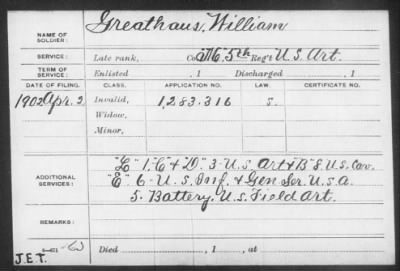 Greathaus, William
NAME OF SOLDIER:
SERVICE: Late rank, Co. M. 5th Reg't U.S. Art.
TERM OF SERVICE: Enlisted , 1 Discharged , 1
DATE OF FILING. CLASS. APPLICATION NO. LAW. CERTIFICATE NO.
1902 Apr. 2. Invalid, 1,283,316 S.
Widow,
Minor,
"L" 1. "C & D" 3 - U.S. Art & B" 8 U.S. Cav.
ADDITIONAL SERVICES: "E" 6 - U.S. Inf. & Gen Ser. U.S.A.
5. Battery, U.S. Field Art.
REMARKS:
Died , 1 , at
J.E.T.